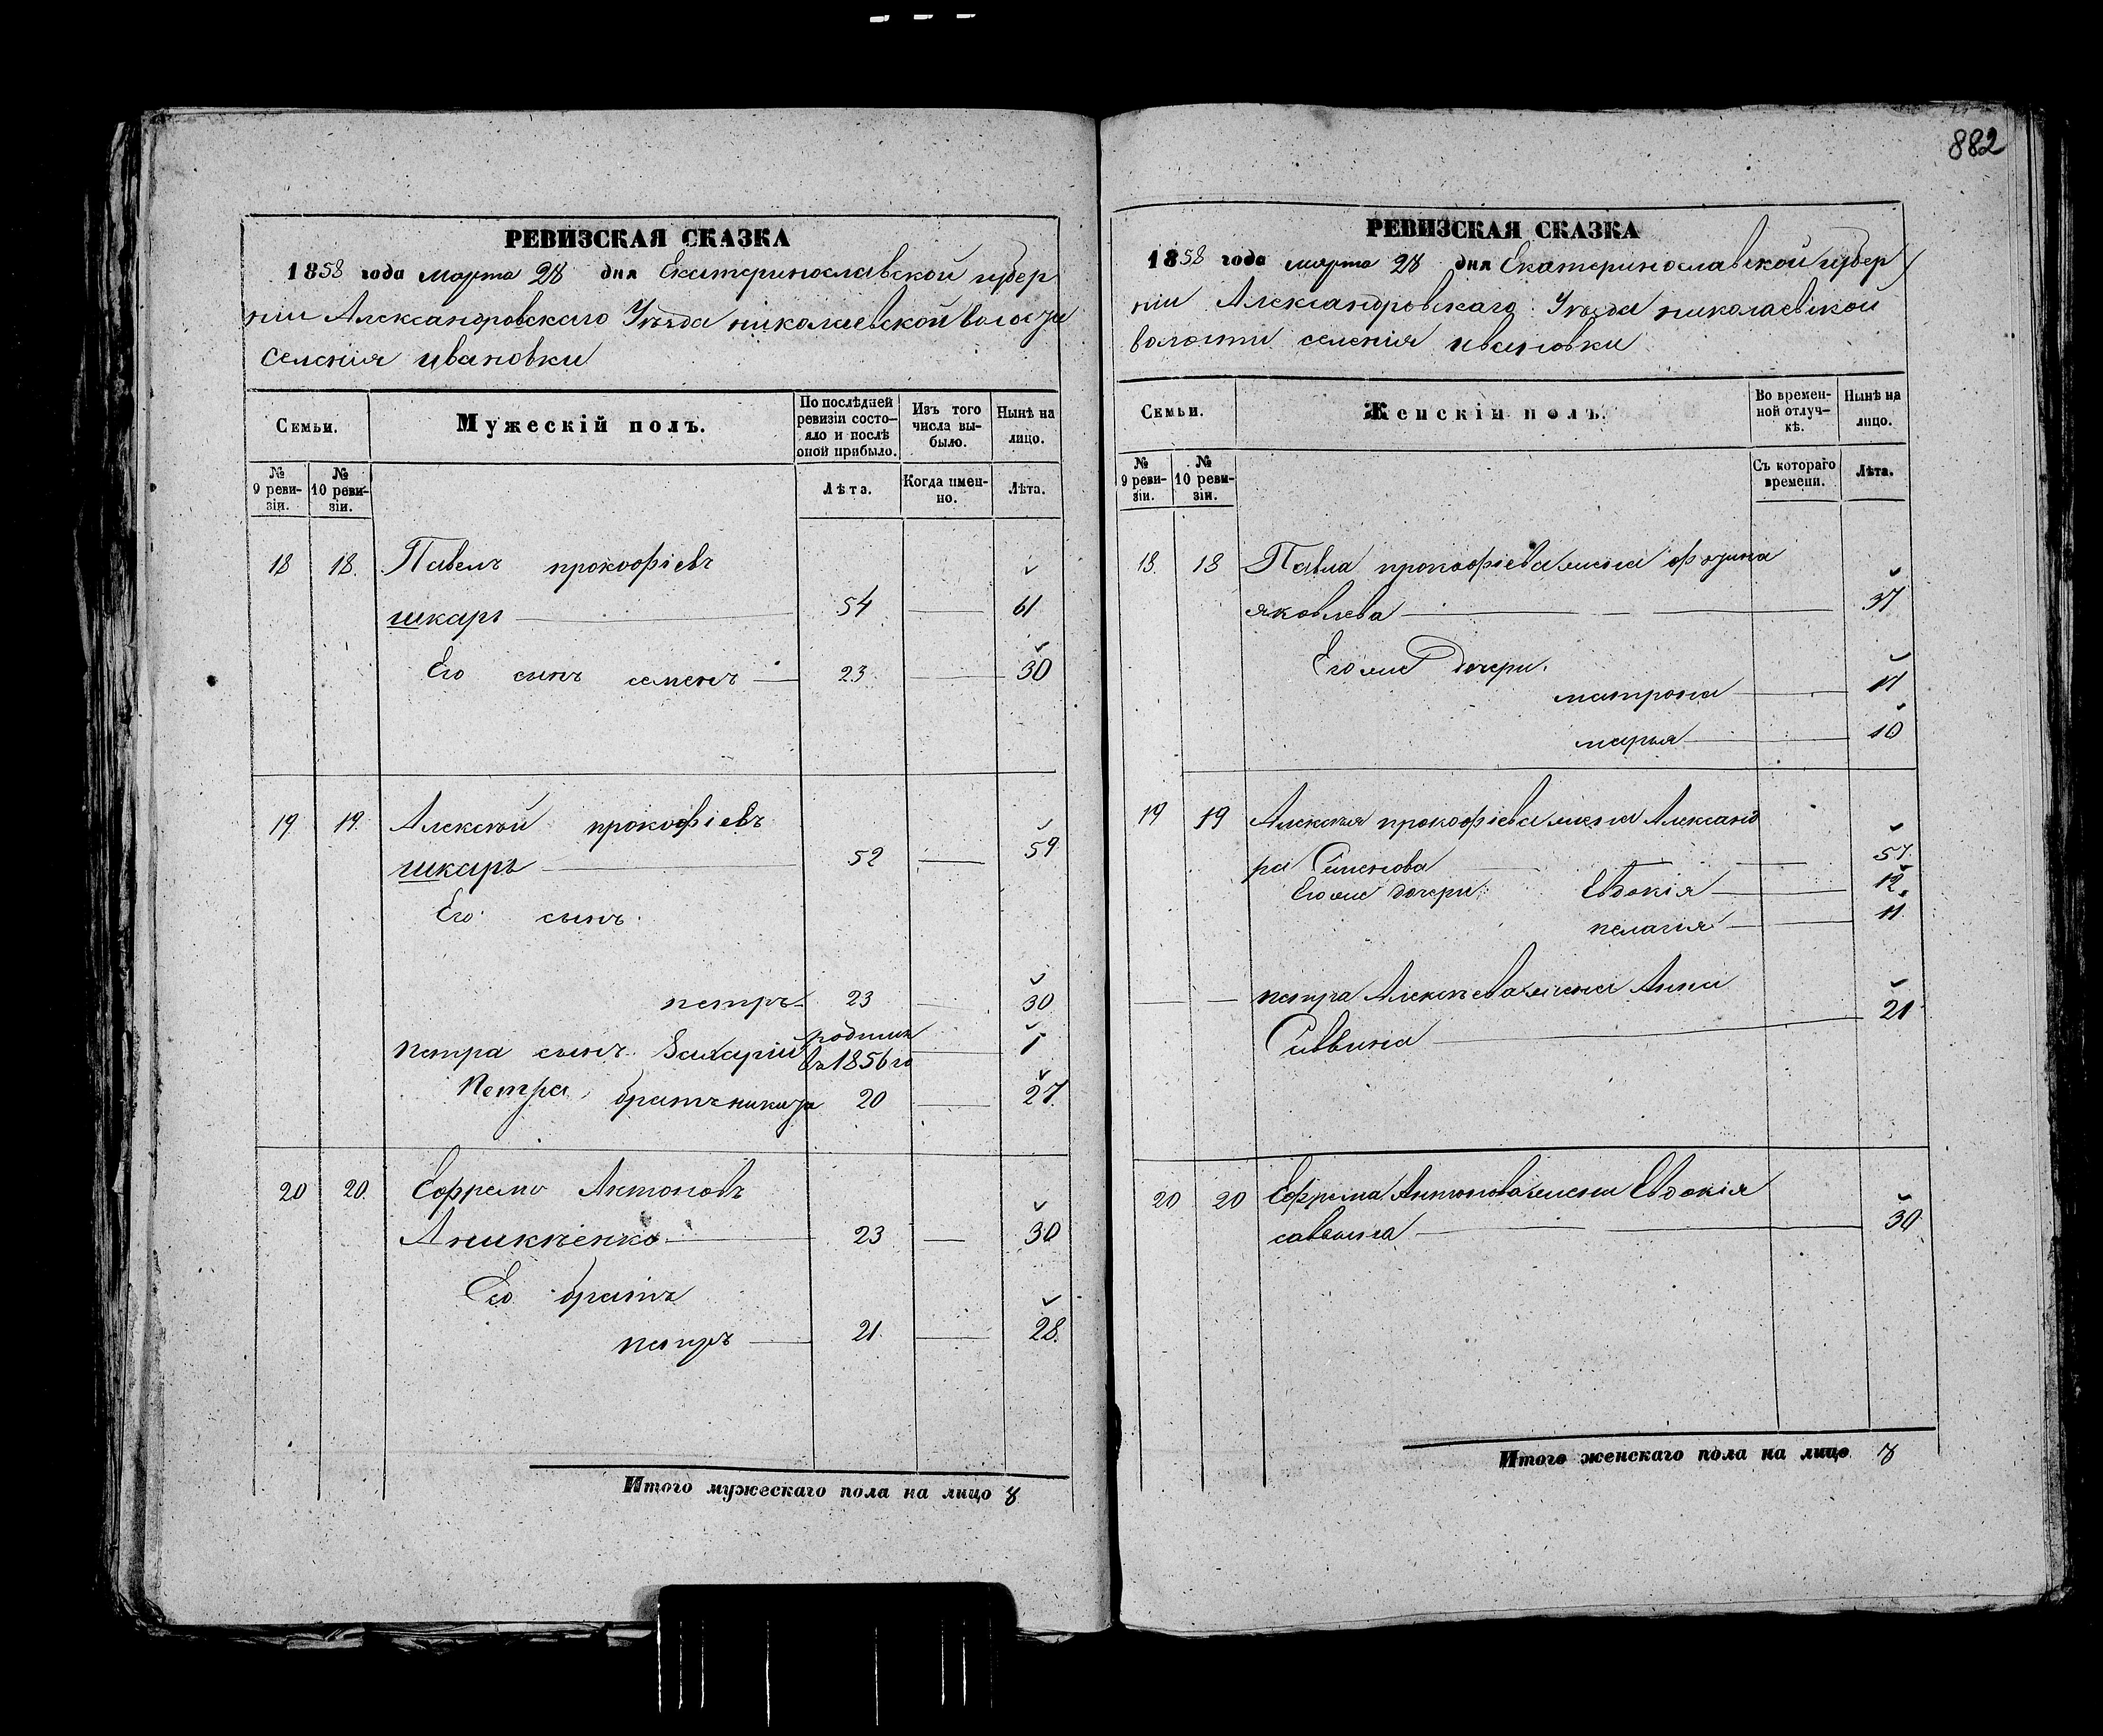 882
РЕВИЗСКАЯ СКАЗКА
1858 года марта 28 дня Екатеринославской губер
ніи Александровскаго Уѣзда николаевской
селенія ивановки
Семьи.
Мужескій полъ.
По послѣдней ревизіи состо-яло и послѣ оной прибыло.
Изъ того числа вы-было.
Нынѣ на лицо.
№ 9 реви-зіи.
№ 10 реви-зіи.
Лѣта.
Когда имен-но.
Лѣта.
18 18. Павелъ прокофіевъ
шкаръ 54 61
Его сынъ семенъ 23 30
19 19. Алексѣй прокофіевъ
шкаръ 52 59
Его сынъ
петръ 23 30
петра сынъ Захарій родился въ 1856 го 1
Петра братъ никита 20 27
20 20. Ефремъ Антоновъ
23 30
Его братъ
петръ 21 28.
Итого мужескаго пола на лицо 8
РЕВИЗСКАЯ СКАЗКА
1858 года марта 28 дня Екатеринославской губер
ніи Александровскаго Уѣзда николаевской
волости селенія ивановки
Семьи.
Женскій полъ.
Во времен-ной отлуч-кѣ.
Нынѣ на лицо.
№ 9 реви-зіи.
№ 10 реви-зіи.
Съ котораго времени.
Лѣта.
18. 18 Павла прокофіева жена
яковлева 37
Его же Дочери.
матрона 17
марья 10
19 19 Алексѣя прокофіева жена Александ
ра Семенова 57
Его же дочери: Евдокія 12
пелагія 11
петра Алексѣева жена Анна
Саввина 21
20 20 Ефрема Антонова жена Евдокія
саввина 30
Итого женскаго пола на лицо 8